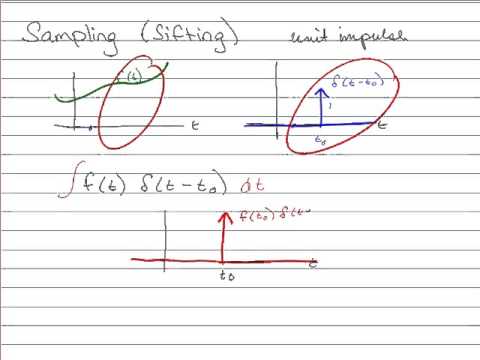 Sampling (Sifting) unit impulse
(t) δ(t-t₀)
1
t t₀ t
∫ f(t) δ(t-t₀) dt
f(t₀) δ(t-
t₀ t